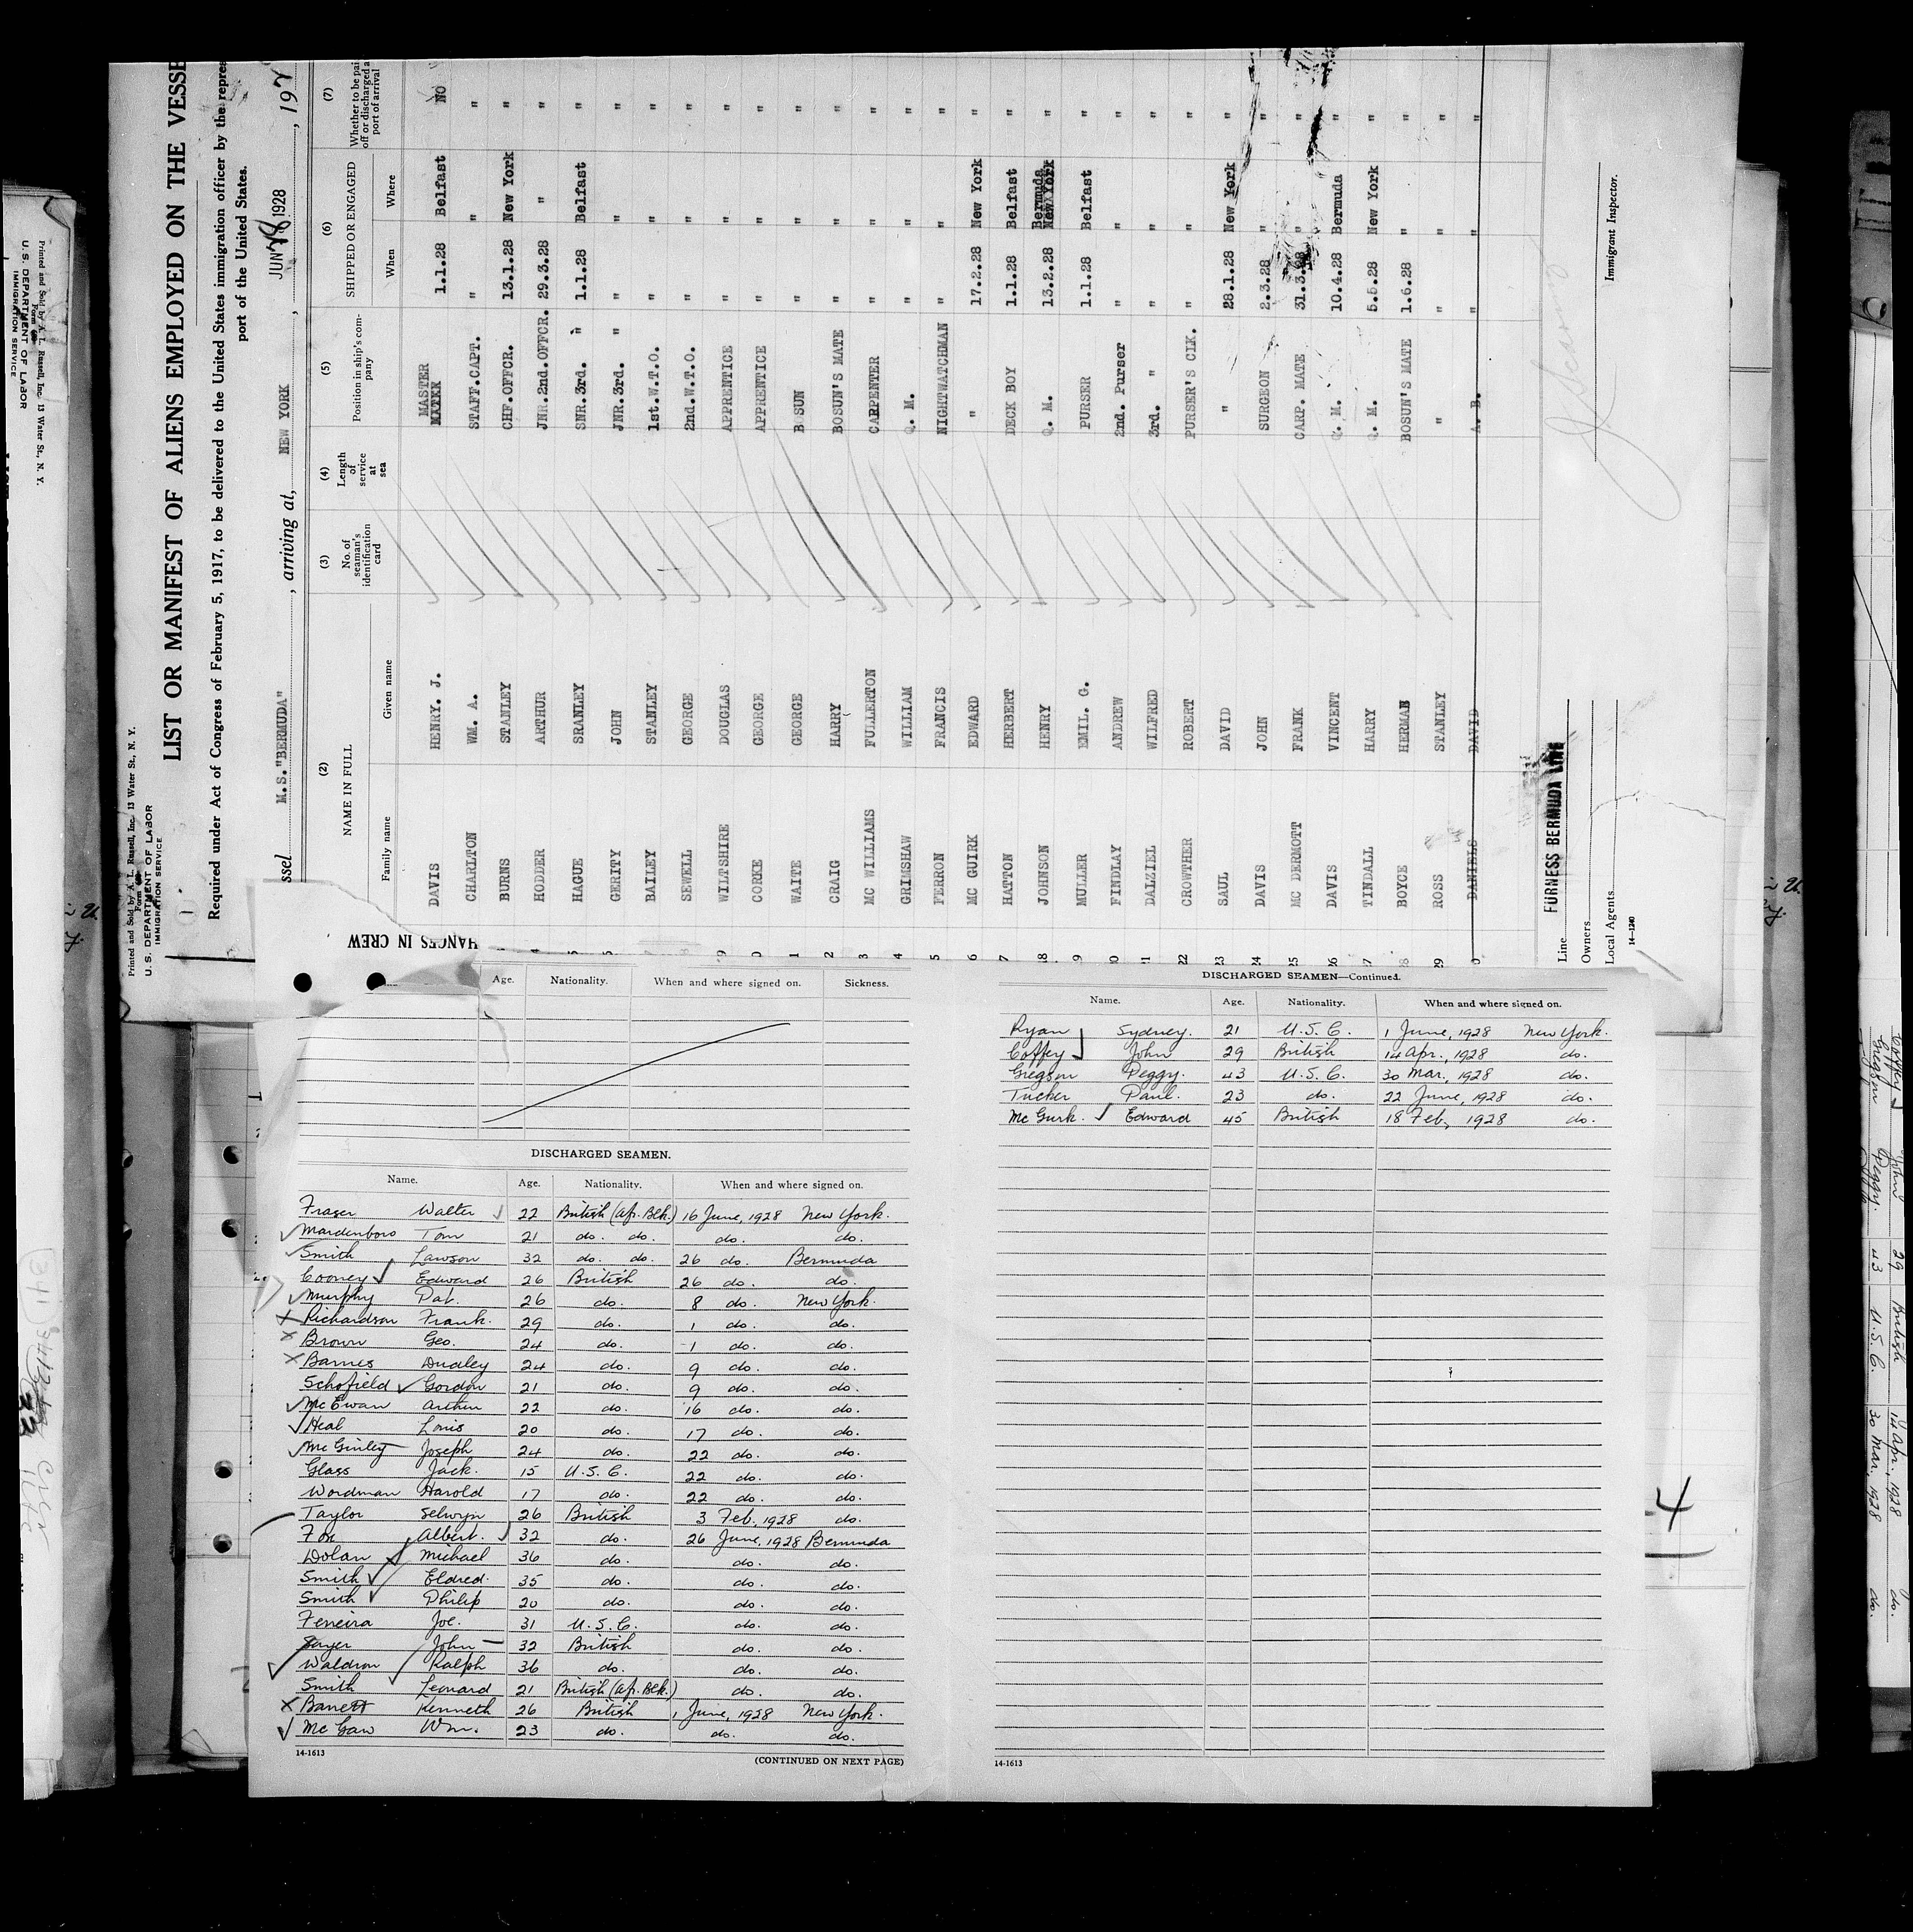 Printed and Sold by A. L. Russell, Inc. 13 Water St., N. Y.
U. S. DEPARTMENT OF LABOR
IMMIGRATION SERVICE
LIST OR MANIFEST OF ALIENS EMPLOYED ON THE VESSE
Required under Act of Congress of February 5, 1917, to be delivered to the United States immigration officer by the repres
port of the United States.
ssel M.S."BERMUDA" , arriving at, NEW YORK , JUN 28 1928 , 192
(2) (3) (4) (5) (6) (7)
NAME IN FULL No. of seaman's identification card Length of service at sea Position in ship's company SHIPPED OR ENGAGED Whether to be pai off or discharged a port of arrival
Family name Given name When Where
DAVIS HENRY. J. MASTER 1.1.28 Belfast NO
CHARLTON WM. A. STAFF.CAPT. " " "
BURNS STANLEY CHF.OFFCR. 13.1.28 New York "
HODDER ARTHUR JNR.2nd.OFFCR. 29.3.28 " "
HAGUE SRANLEY SNR.3rd. " 1.1.28 Belfast "
GERITY JOHN JNR.3rd. " " " "
BAILEY STANLEY 1st.W.T.O. " " "
SEWELL GEORGE 2nd.W.T.O. " " "
9 WILTSHIRE DOUGLAS APPRENTICE " " "
0 CORKE GEORGE APPRENTICE " " "
1 WAITE GEORGE BOSUN " " "
2 CRAIG HARRY BOSUN'S MATE " " "
3 MC WILLIAMS FULLERTON CARPENTER " " "
4 GRIMSHAW WILLIAM Q. M. " " "
5 FERRON FRANCIS NIGHTWATCHMAN " " "
6 MC GUIRK EDWARD " 17.2.28 New York "
7 HATTON HERBERT DECK BOY 1.1.28 Belfast "
18 JOHNSON HENRY Q. M. 13.2.28 Bermuda New York "
9 MULLER EMIL. G. PURSER 1.1.28 Belfast "
0 FINDLAY ANDREW 2nd. Purser " " "
21 DALZIEL WILFRED 3rd. " " " "
22 CROWTHER ROBERT PURSER'S CLK. " " "
23 SAUL DAVID " 28.1.28 New York "
24 DAVIS JOHN SURGEON 2.3.28 " "
25 MC DERMOTT FRANK CARP. MATE 31.3.28 " "
26 DAVIS VINCENT Q. M. 10.4.28 Bermuda "
7 TINDALL HARRY Q. M. 5.5.28 New York "
8 BOYCE HERMAN BOSUN'S MATE 1.6.28 " "
29 ROSS STANLEY " " " "
0 DANIELS DAVID A. B. " " "
Line FURNESS BERMUDA LINE
Owners
Local Agents
14—1240
Immigrant Inspector.
HANGES IN CREW
Age. Nationality. When and where signed on. Sickness.
DISCHARGED SEAMEN.
Name. Age. Nationality. When and where signed on.
Fraser Walter 22 British (Af. Blk.) 16 June, 1928 New York.
Mardenboro Tom 21 do. do. do. do.
Smith Lawson 32 do. do. 26 do. Bermuda
Cooney Edward 26 British 26 do. do.
Murphy Pat. 26 do. 8 do. New York.
Richardson Frank. 29 do. 1 do. do.
Brown Geo. 24 do. 1 do. do.
Barnes Dudley 24 do. 9 do. do.
Schofield Gordon 21 do. 9 do. do.
McEwan Arthur 22 do. 16 do. do.
Heal Louis 20 do. 17 do. do.
McGinley Joseph 24 do. 22 do. do.
Glass Jack. 15 U.S.C. 22 do. do.
Wordman Harold 17 do. 22 do. do.
Taylor Selwyn 26 British 3 Feb, 1928 do.
Fox Albert. 32 do. 26 June, 1928 Bermuda
Dolan Michael 36 do. do. do.
Smith Eldred. 35 do. do. do.
Smith Philip 20 do. do. do.
Ferreira Joe. 31 U.S.C. do. do.
Sayer John 32 British do. do.
Waldron Ralph 36 do. do. do.
Smith Leonard 21 British (Af. Blk.) do. do.
Barrett Kenneth 26 British 1 June, 1928 New York.
McGaw Wm. 23 do. do. do.
14-1613
(CONTINUED ON NEXT PAGE)
DISCHARGED SEAMEN—Continued.
Name. Age. Nationality. When and where signed on.
Ryan Sydney. 21 U.S.C. 1 June, 1928 New York.
Coffey John 29 British 14 Apr., 1928 do.
Gregson Peggy. 43 U.S.C. 30 Mar., 1928 do.
Tucker Paul. 23 do. 22 June, 1928 do.
McGurk. Edward 45 British 18 Feb, 1928 do.
14-1613
4